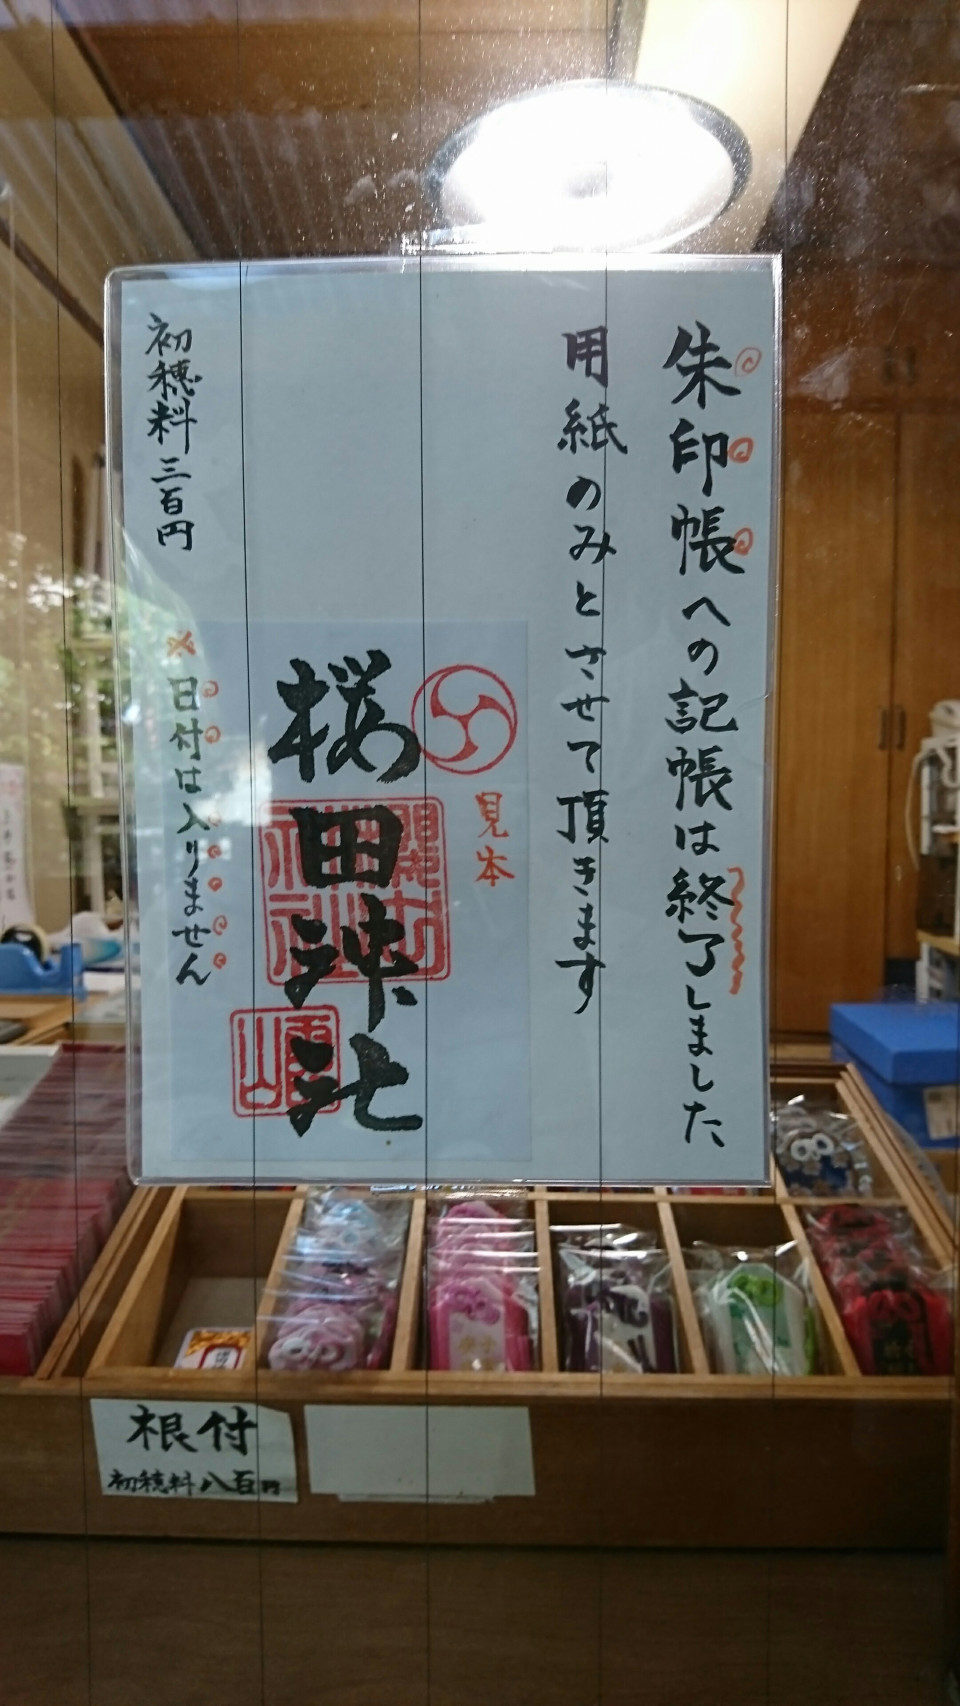 朱印帳への記帳は終了しました
用紙のみとさせて頂きます
見本
桜田神社
※日付は入りません
初穂料三百円
根付
初穂料八百円